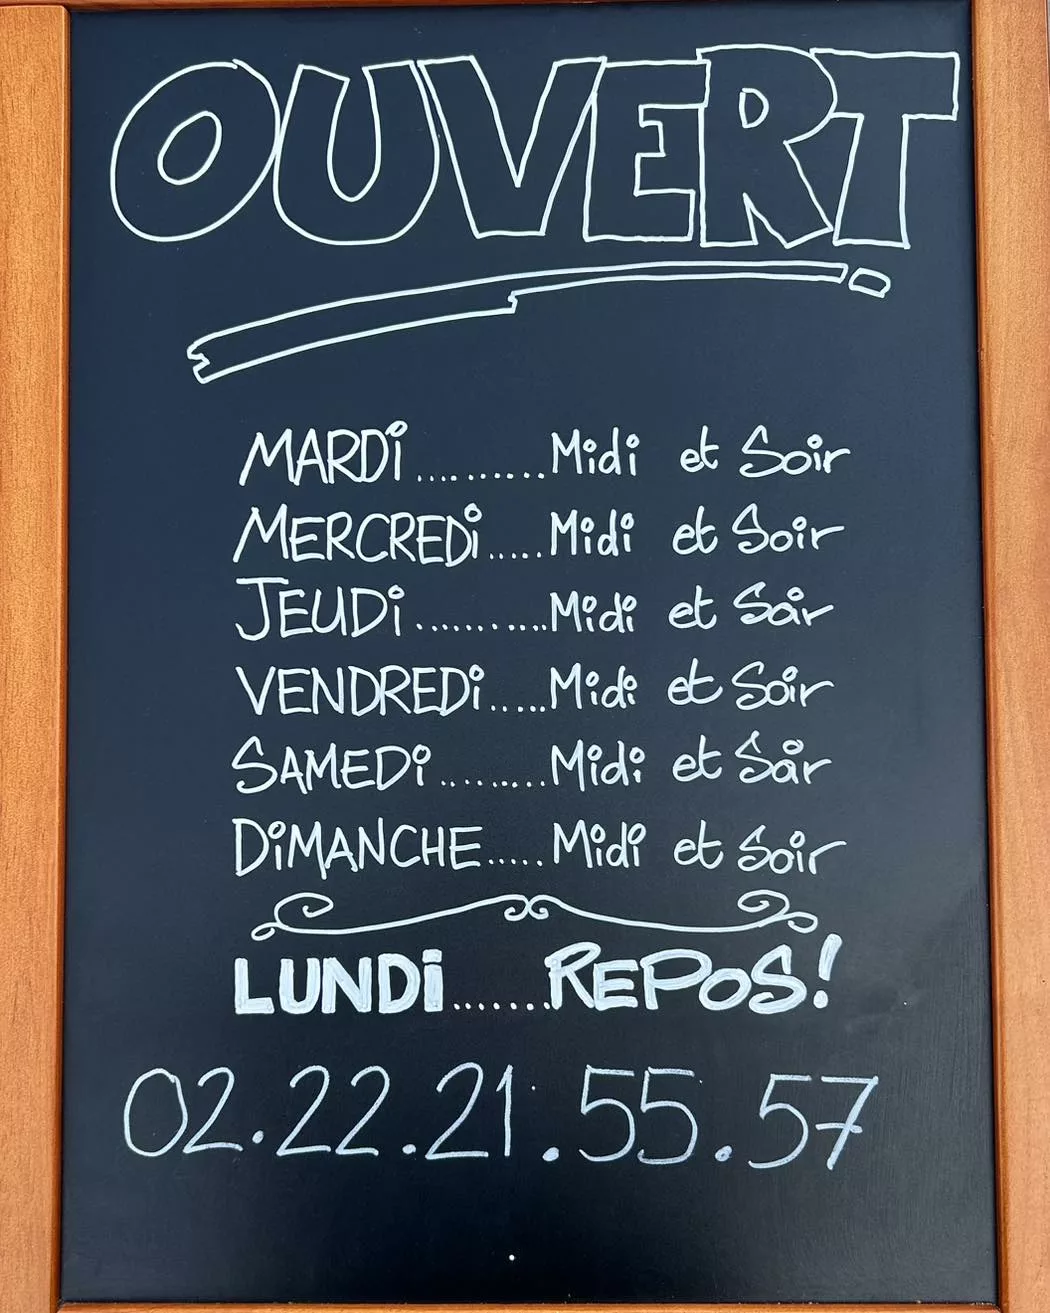 OUVERT
MARDi..........Midi et Soir
MERCREDi.....Midi et Soir
JEUDi...........Midi et Soir
VENDREDi.....Midi et Soir
SAMEDi.........Midi et Soir
DiMANCHE.....Midi et Soir
LUNDi.......REPOS!
02.22.21.55.57